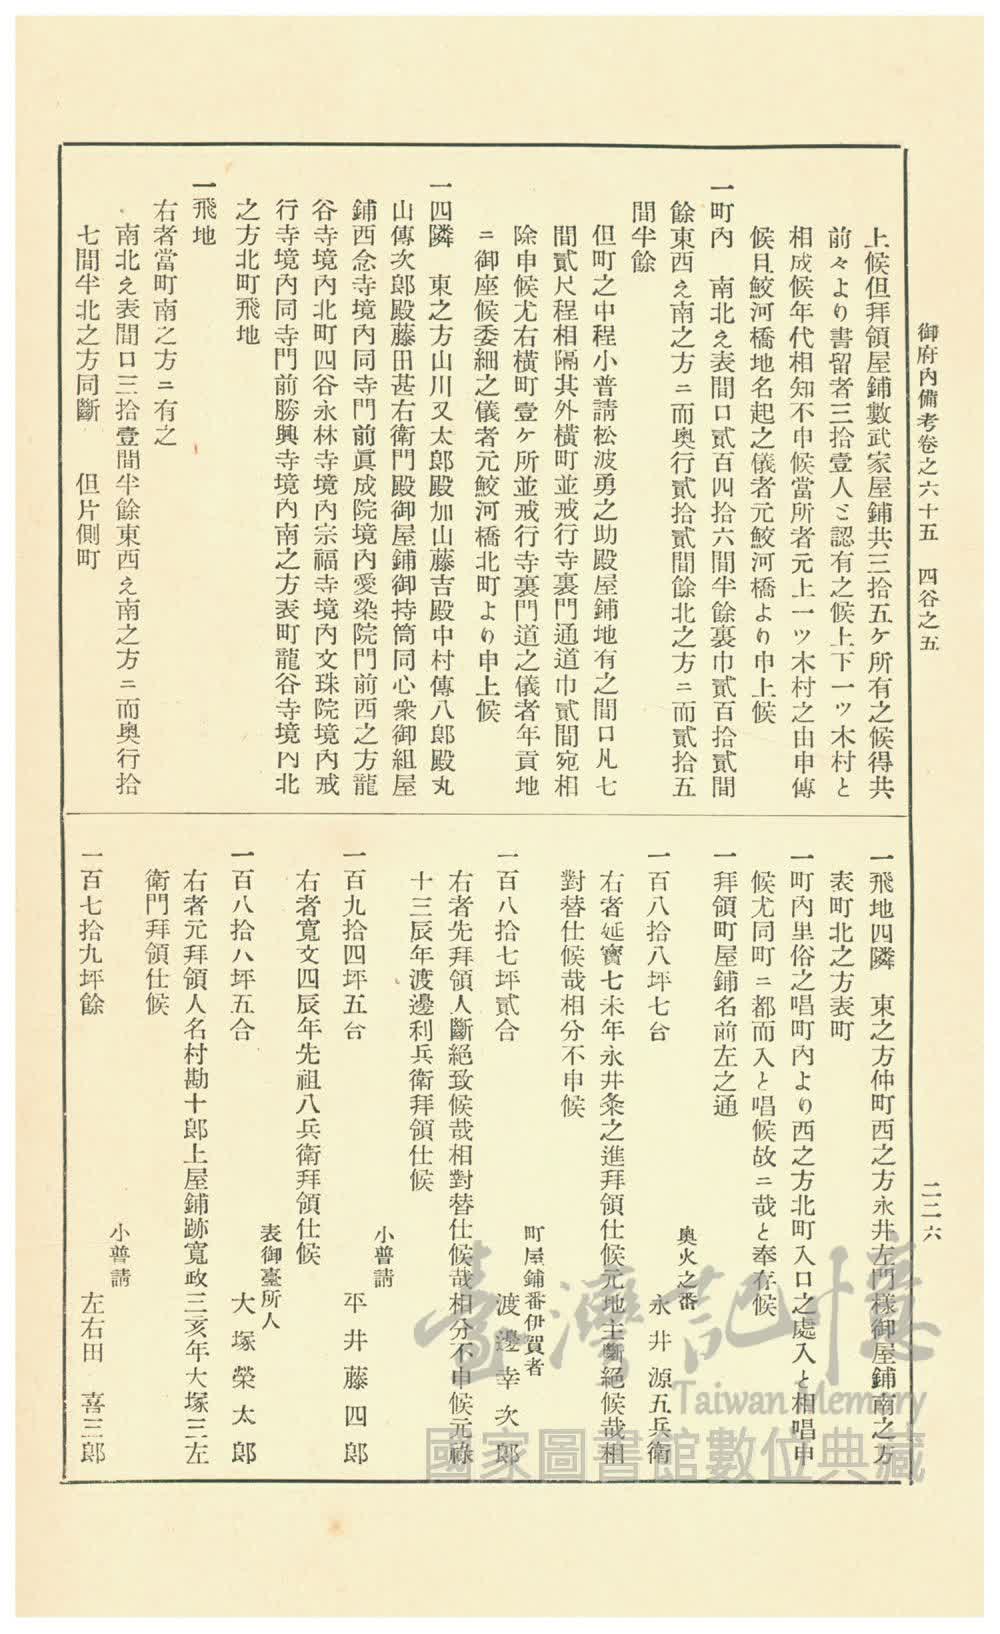 御府內備考卷之六十五　四谷之五
二二六
上候但拜領屋鋪數武家屋鋪共三拾五ケ所有之候得共
前々より書留者三拾壹人と認有之候上下一ツ木村と
相成候年代相知不申候當所者元上一ツ木村之由申傳
候且鮫河橋地名起之儀者元鮫河橋より申上候
一町內　南北え表間口貳百四拾六間半餘裏巾貳百拾貳間
餘東西え南之方ニ而奧行貳拾貳間餘北之方ニ而貳拾五
間半餘
但町之中程小普請松波勇之助殿屋鋪地有之間口凡七
間貳尺程相隔其外橫町並戒行寺裏門通道巾貳間宛相
除申候尤右橫町壹ケ所並戒行寺裏門道之儀者年貢地
ニ御座候委細之儀者元鮫河橋北町より申上候
一四隣　東之方山川又太郎殿加山藤吉殿中村傳八郎殿丸
山傳次郎殿藤田甚右衞門殿御屋鋪御持筒同心衆御組屋
鋪西念寺境內同寺門前眞成院境內愛染院門前西之方龍
谷寺境內北町四谷永林寺境內宗福寺境內文珠院境內戒
行寺境內同寺門前勝興寺境內南之方表町龍谷寺境內北
之方北町飛地
一飛地
右者當町南之方ニ有之
南北え表間口三拾壹間半餘東西え南之方ニ而奧行拾
七間半北之方同斷　但片側町
一飛地四隣　東之方仲町西之方永井左門樣御屋鋪南之方
表町北之方表町
一町內里俗之唱町內より西之方北町入口之處入と相唱申
候尤同町ニ都而入と唱候故ニ哉と奉存候
一拜領町屋鋪名前左之通
奧火之番
一百八拾八坪七合　永井源五兵衞
右者延寶七未年永井粂之進拜領仕候元地主斷絕候哉相
對替仕候哉相分不申候
町屋鋪番伊賀者
一百八拾七坪貳合　渡邊幸次郎
右者先拜領人斷絕致候哉相對替仕候哉相分不申候元祿
十三辰年渡邊利兵衞拜領仕候
小普請
一百九拾四坪五合　平井藤四郎
右者寬文四辰年先祖八兵衞拜領仕候
表御臺所人
一百八拾八坪五合　大塚榮太郎
右者元拜領人名村勘十郎上屋鋪跡寬政三亥年大塚三左
衞門拜領仕候
小普請
一百七拾九坪餘　左右田　喜三郎
臺灣記憶
Taiwan Memory
國家圖書館數位典藏